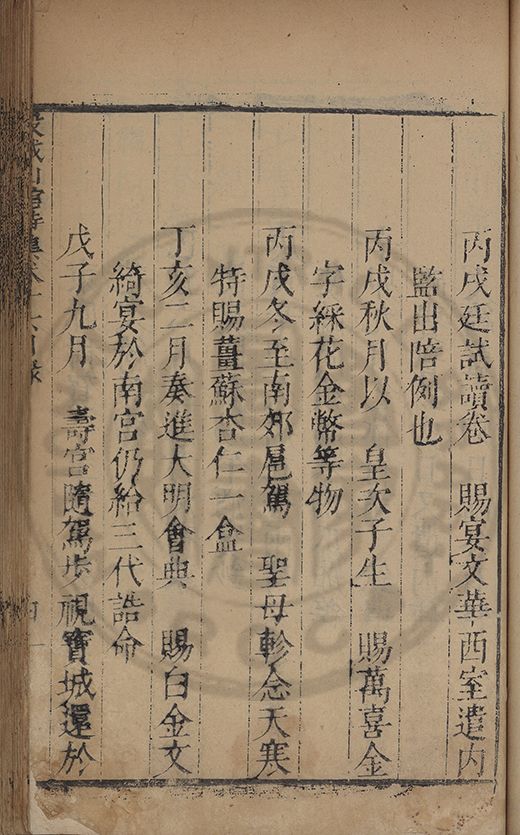 丙戌廷試讀卷　賜宴文華西室遣内
監出陪例也
丙戌秋月以　皇次子生　賜萬喜金
字綵花金幣等物
丙戌冬至南郊扈駕　聖母軫念天寒
特賜薑蘇杏仁一盒
丁亥二月奏進大明會典　賜白金文
綺宴於南宮仍給三代誥命
戊子九月　壽宮隨駕恭視寶城還於
目錄